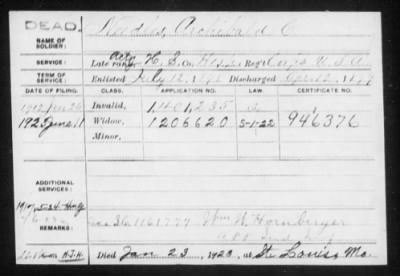 DEAD.
NAME OF SOLDIER:
Needles, Archibald C
SERVICE:
Late rank, Actg H. S. Co. Hosp. Reg't Corps U.S.A.
TERM OF SERVICE:
Enlisted July 12, 189 Discharged April 2, 1899
DATE OF FILING.
CLASS.
APPLICATION NO.
LAW.
CERTIFICATE NO.
1912 Jan 26
Invalid,
1,401,235
1923 June 11
Widow,
1206620
5-1-22
946376
Minor,
ADDITIONAL SERVICES:
REMARKS:
1161777 Wm W. Hornburger
Died Jan 23, 1923, at St. Louis, Mo.